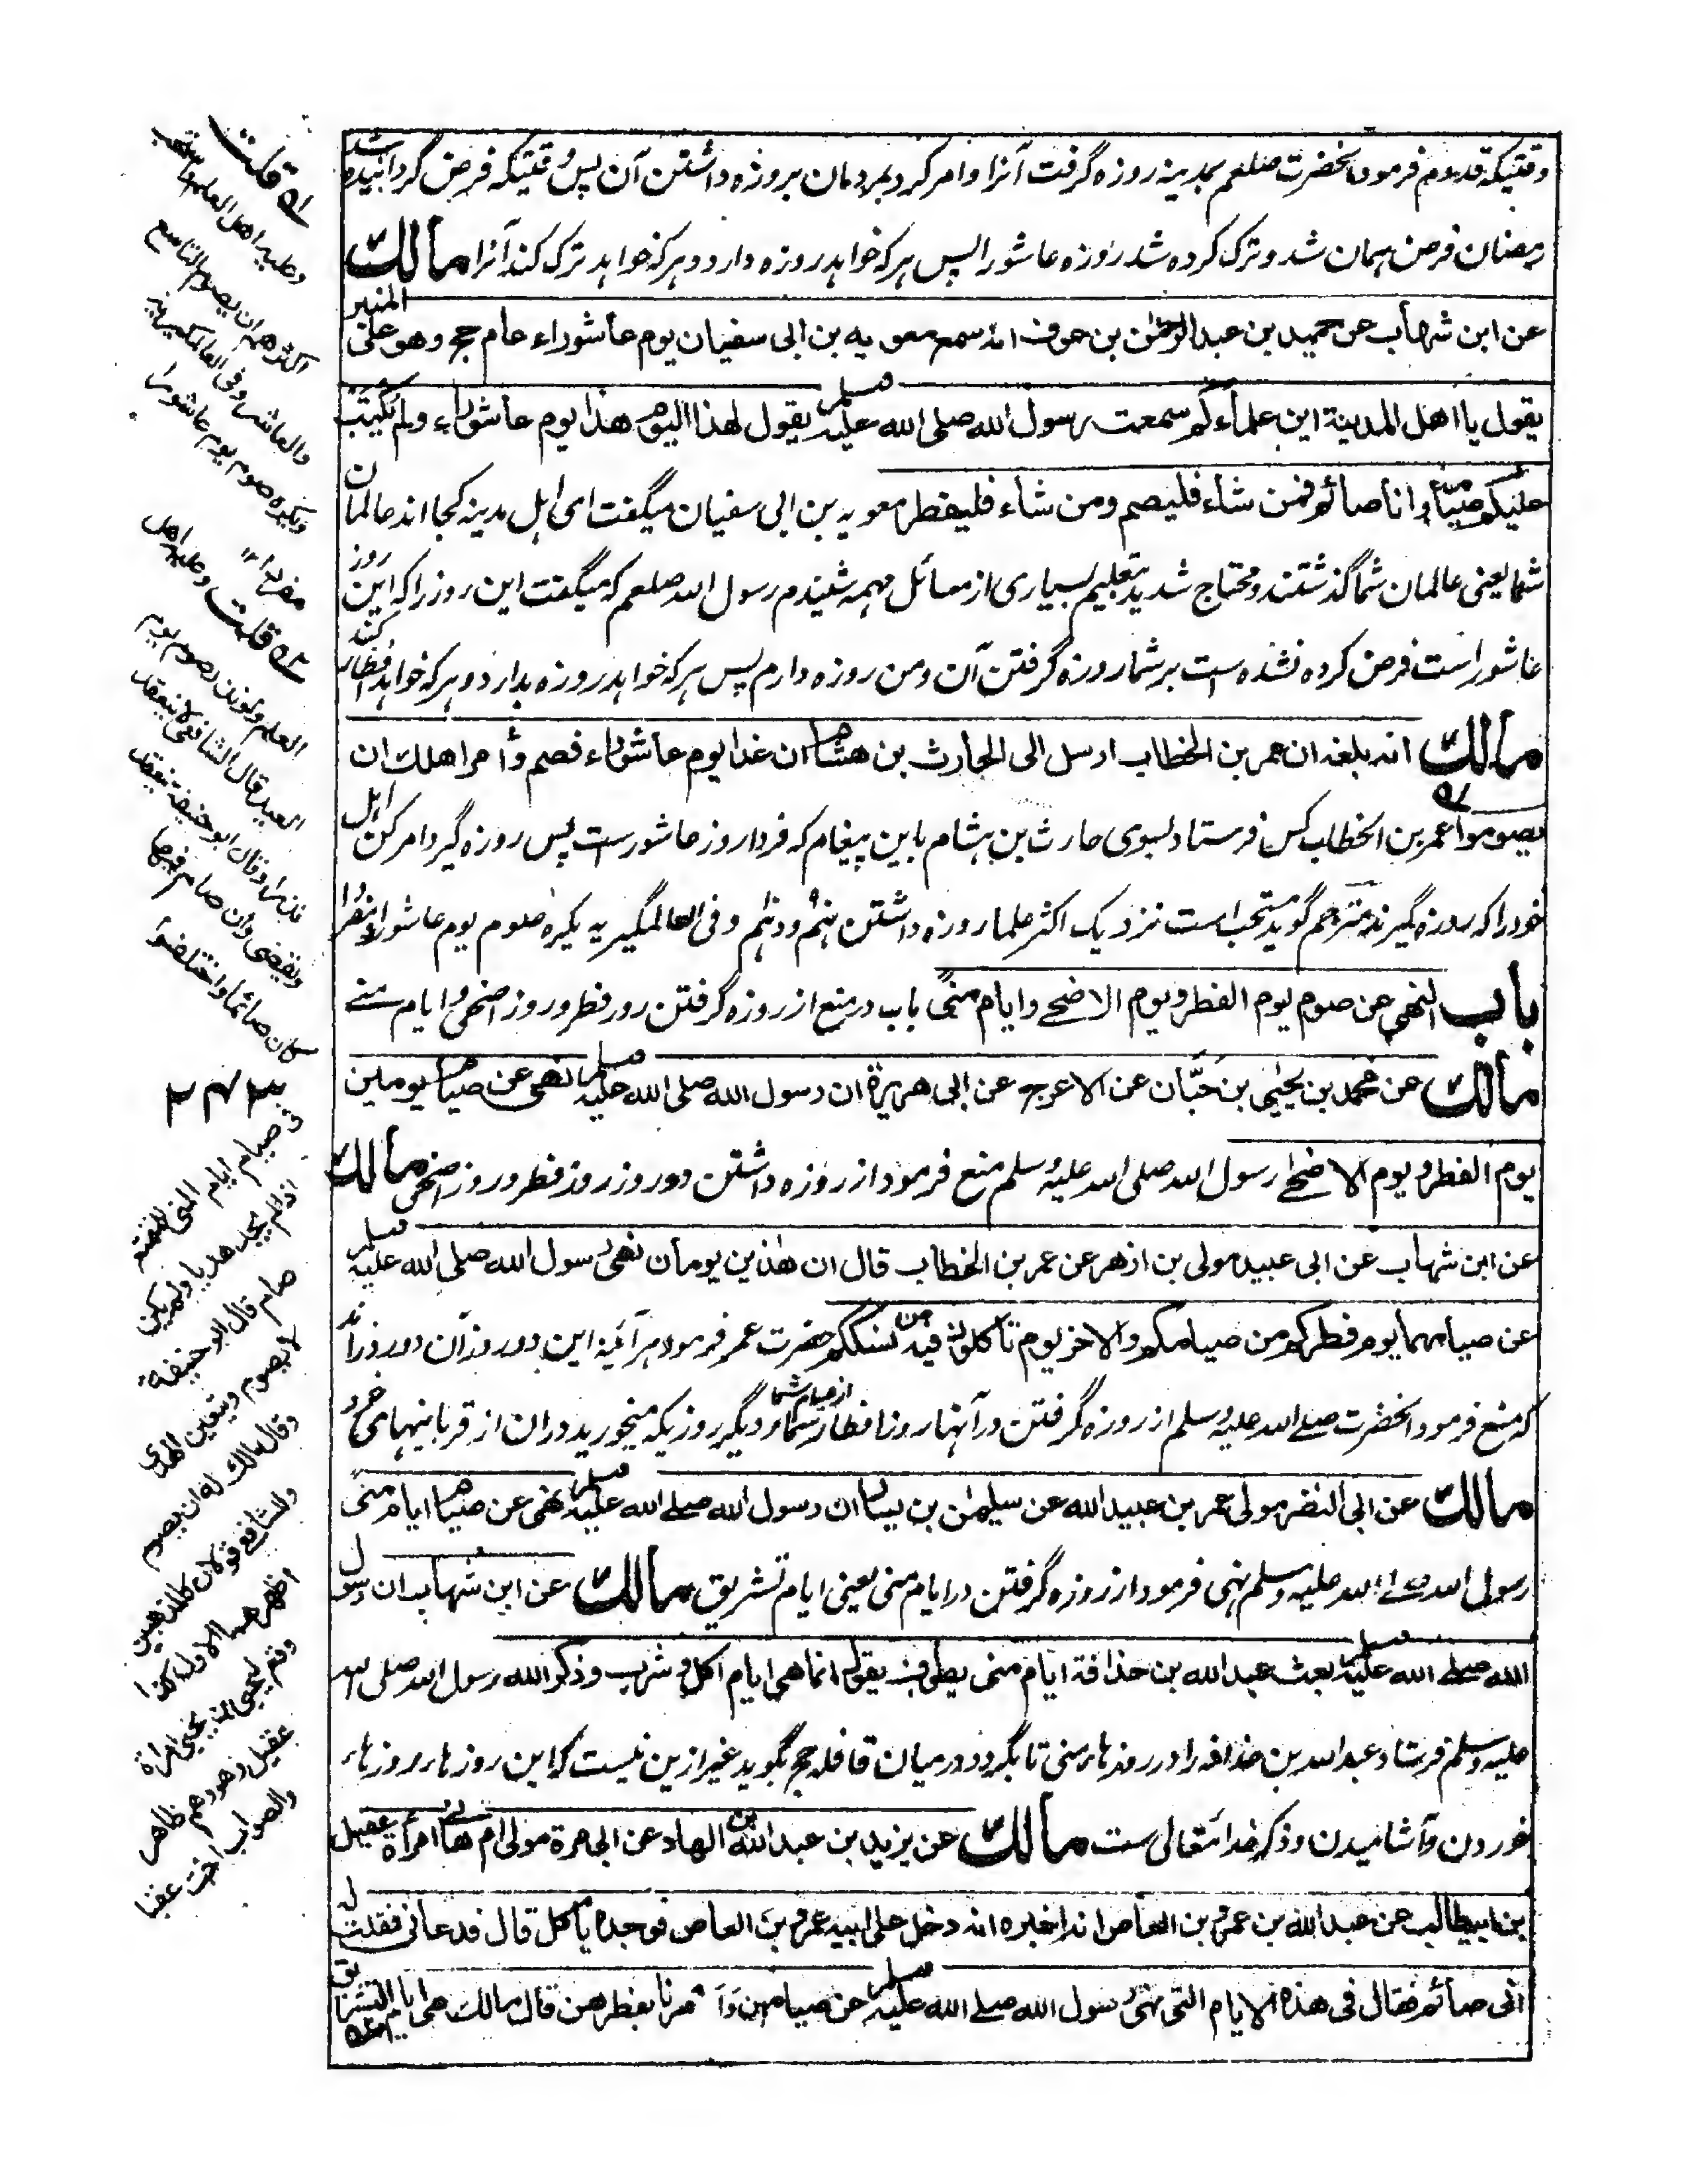 وقتیکه قدوم فرمود آنحضرت صلعم بمدینه روزه گرفت آنرا و امر کرد بمردمان بروزه داشتن آن پس وقتیکه فرض گردانیده شد
رمضان فرض همان شد و ترک کرده شد روزه عاشورا پس هر که خواهد روزه دارد و هر که خواهد ترک کند آنرا مالك
عن ابن شهاب عن حميد بن عبد الرحمٰن بن عوف انه سمع معوية بن ابى سفيان يوم عاشوراء عام حج وهو على المنبر
يقول يا اهل المدينة اين علماءكم سمعت رسول الله صلى الله عليه وسلم يقول لهذا اليوم هذا يوم عاشوراء ولم يكتب
عليكم صيامه وانا صائم فمن شاء فليصم ومن شاء فليفطر معویه بن ابی سفیان میگفت ای اهل مدینه کجا اند عالمان
شما یعنی عالمان شما گذشتند و محتاج شدید بتعلیم بسیاری از مسائل مهمه شنیدم رسول الله صلعم که میگفت این روز را که این روز
عاشوراست فرض کرده نشده است بر شما روزه گرفتن آن و من روزه دارم پس هر که خواهد روزه بدارد و هر که خواهد افطار کند
مالك انه بلغه ان عمر بن الخطاب ارسل الى الحارث بن هشام ان غدا يوم عاشوراء فصم وأمر اهلك ان
يصوموا عمر بن الخطاب کس فرستاد بسوی حارث بن هشام باین پیغام که فردا روز عاشورست پس روزه گیر و امر کن اهل
خود را که روزه گیرند مترجم گوید مستحب است نزدیک اکثر علما روزه داشتن نهم و دهم و فی العالمگیریه یکره صوم یوم عاشورا منفردا
باب النهى عن صوم يوم الفطر ويوم الاضحے وايام منى باب در منع از روزه گرفتن روز فطر و روز اضحی و ایام منے
مالك عن محمد بن يحيٰى بن حَبَّان عن الاعرج عن ابى هريرة ان رسول الله صلى الله عليه وسلم نهى عن صيام يومين
يوم الفطر ويوم الاضحے رسول الله صلی الله علیه وسلم منع فرمود از روزه داشتن دو روز روز فطر و روز اضحی مالك
عن ابن شهاب عن ابى عبيد مولى بن ازهر عن عمر بن الخطاب قال ان هٰذين يومان نهى رسول الله صلى الله عليه وسلم
عن صيامهما يوم فطركم من صيامكم والاخر يوم تاكلون فيه من نسككم حضرت عمر فرمود هرآئینه این دو روزند آن دو روز
که منع فرمود آنحضرت صلے الله علیه وسلم از روزه گرفتن در آنها روز افطار شما از صیام شما و دیگر روزیکه میخورید دران از قربانیهای خود
مالك عن ابى النضر مولى عمر بن عبيد الله عن سليمٰن بن يسار ان رسول الله صلے الله عليه وسلم نهى عن صيام ايام منى
رسول الله صلے الله علیه وسلم نهی فرمود از روزه گرفتن در ایام منی یعنی ایام تشریق مالك عن ابن شهاب ان رسول
الله صلے الله عليه وسلم بعث عبد الله بن حذافة ايام منى يطوف يقول انما هى ايام اكل و شرب وذكر الله رسول الله صلی الله
علیه وسلم فرستاد عبد الله بن حذافه را در روزهاے منی تا بگردد در میان قافله حج بگوید غیر ازین نیست که این روزها روزهاے
خوردن و آشامیدن و ذکر خدا تعالی ست مالك عن يزيد بن عبد الله بن الهاد عن ابى مرة مولى ام هانئ امرأة عقيل
بن ابيطالب عن عبد الله بن عمرو بن العاص انه اخبره انه دخل على ابيه عمرو بن العاص فوجده ياكل قال فدعانى فقلت
انى صائم فقال فى هذه الايام التى نهى رسول الله صلے الله عليه وسلم عن صيامهن وَاَمرنا بفطرهن قال مالك هى ايام التشريق
قلت
وعليه اهل العلم
اكثرهم ان يصوم التاسع
والعاشر وفى العالمكيرية
ويكره صوم يوم عاشورا
مفردا ١٢
قلت وعليه اهل
العلم ولو نذر صوم يوم
العيد قال الشافعى لا ينعقد
نذره وقال ابو حنيفة ينعقد
ويقضى وان صام فيها
كان صائما واختلفوا
فى صيام ايام المنى للمتمتع
اذا لم يجد هديا ولم يكن
صام قال ابو حنيفة
لا يصوم ويتعين الهدى
وقال مالك له ان يصوم
وللشافعى قولان كالمذهبين
اظهرهما الاول كذا
وقع ليحيى بن يحيى امرأة
عقيل وهو وهم ظاهر
والصواب اخت عقيل